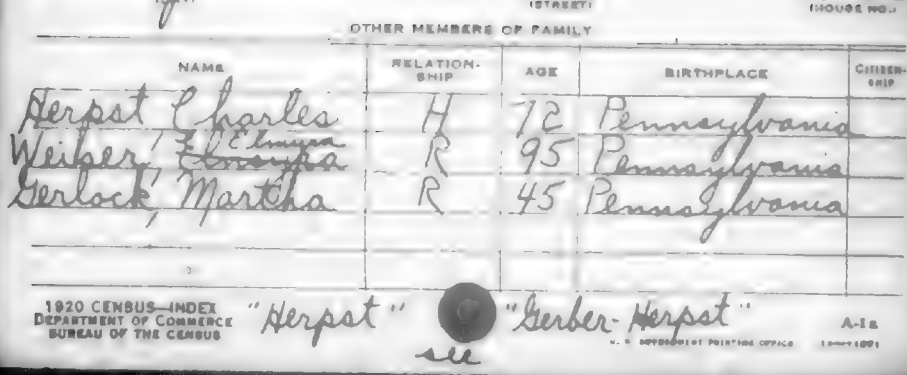 (STREET)
(HOUSE NO.)
OTHER MEMBERS OF FAMILY
NAME RELATION-SHIP AGE BIRTHPLACE CITIZEN-SHIP
Herpst Charles H 72 Pennsylvania
Elmyra
Weiser, R 95 Pennsylvania
Gerlock, Martha R 45 Pennsylvania
1920 CENSUS—INDEX
DEPARTMENT OF COMMERCE
BUREAU OF THE CENSUS
"Herpst" "Gerber-Herpst" A-1a
U. S. GOVERNMENT PRINTING OFFICE
see